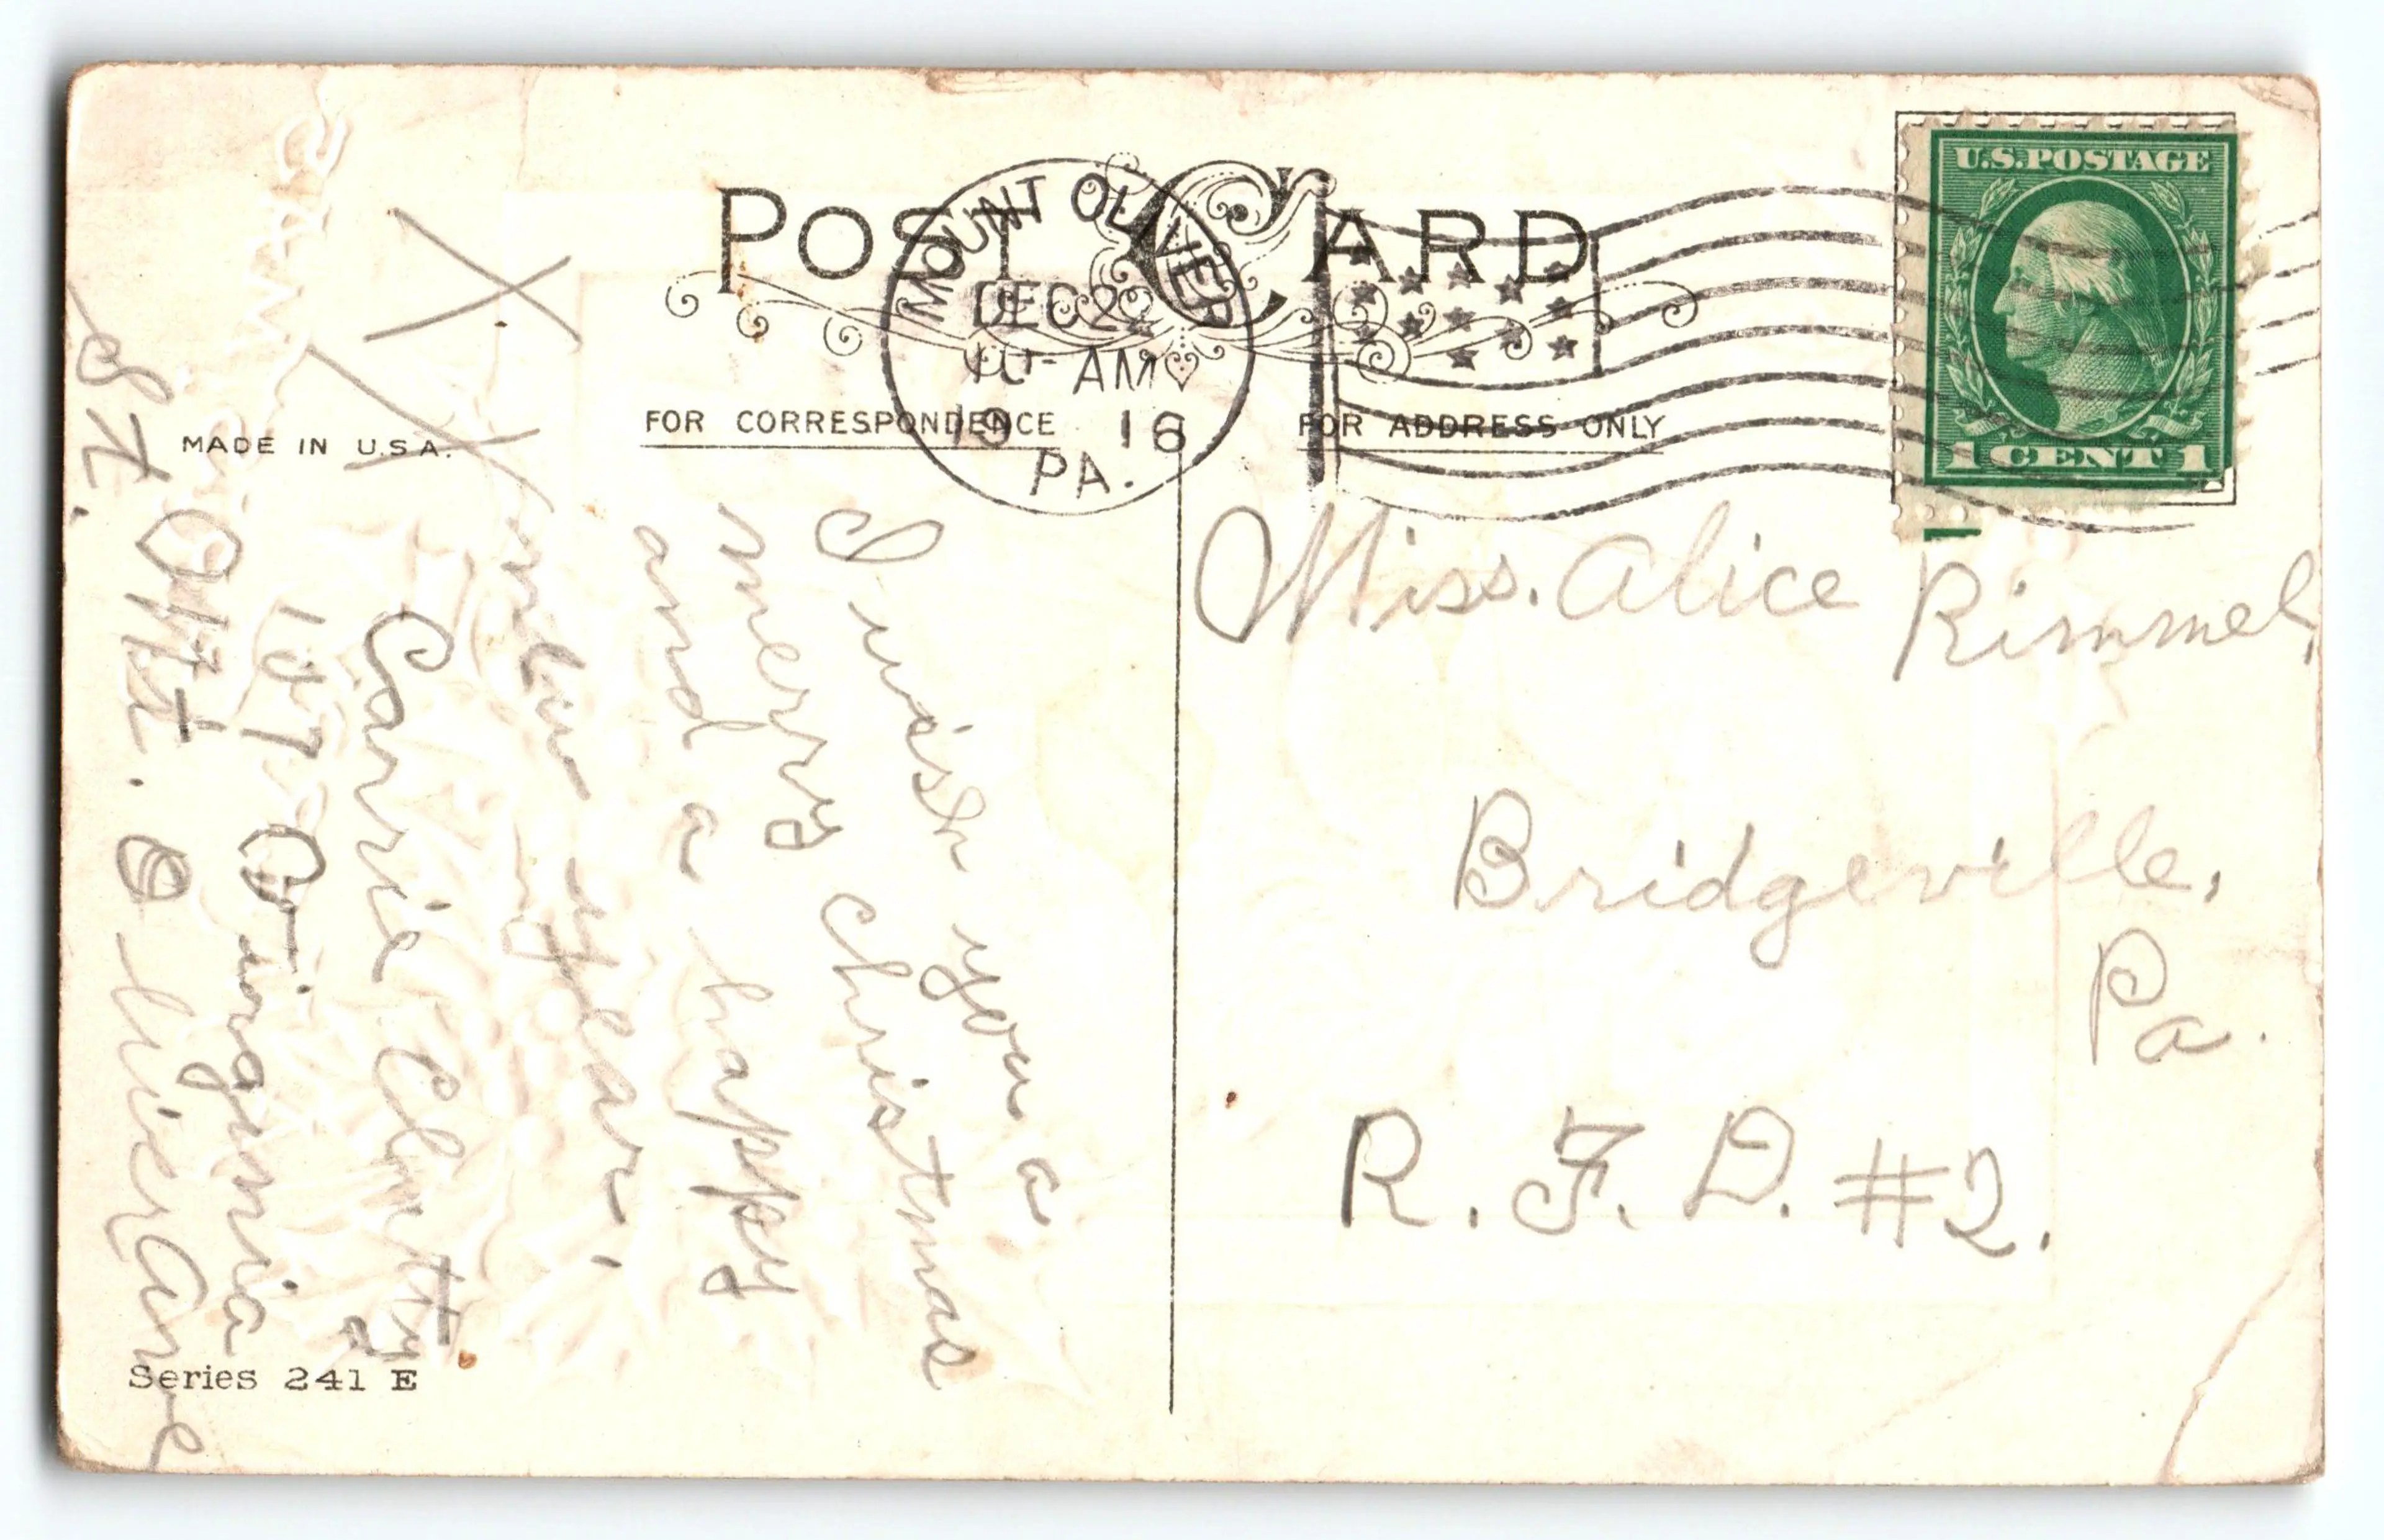 POST CARD
MOUNT OLIVER
DEC 22
10- AM
19 16
PA.
U.S. POSTAGE
1 CENT 1
MADE IN U.S.A.
FOR CORRESPONDENCE
FOR ADDRESS ONLY
Miss. Alice Rimmel,
Bridgeville,
Pa.
R. F. D. #2.
I wish you a
merry christmas
and a happy
new year.
Carrie
107 Virginia
Mt. Oliver
St.
Series 241 E
X X